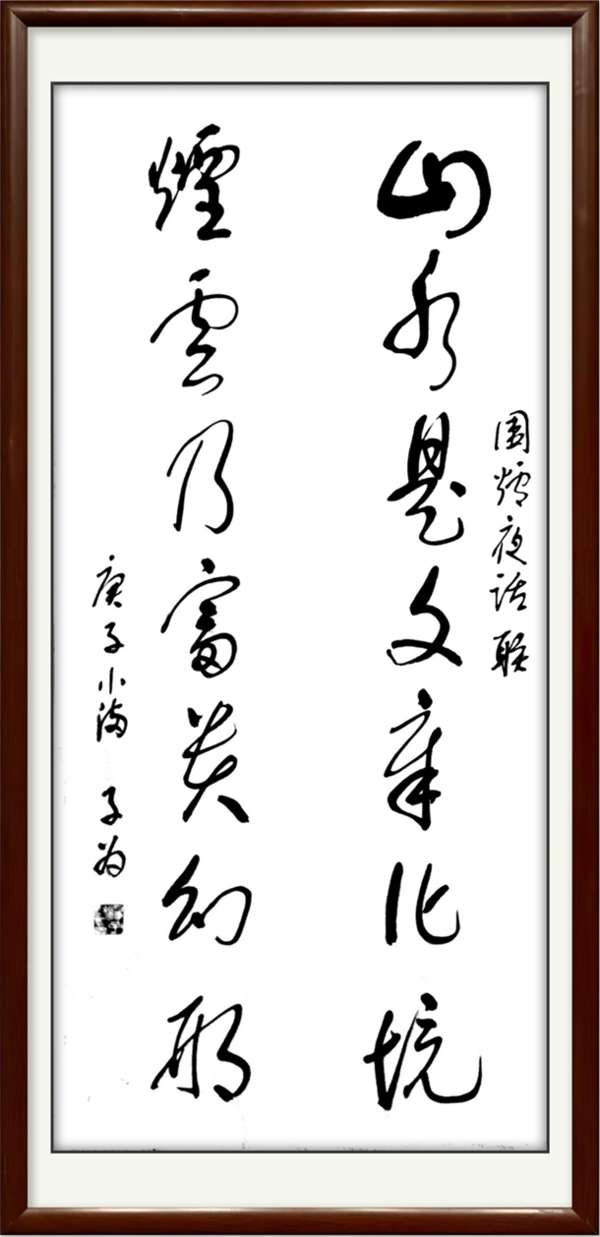 圍爐夜話联
山水是文章化境
煙雲乃富贵幻形
庚子小满 子为